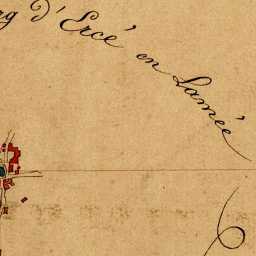 d'Ercé en Lamée